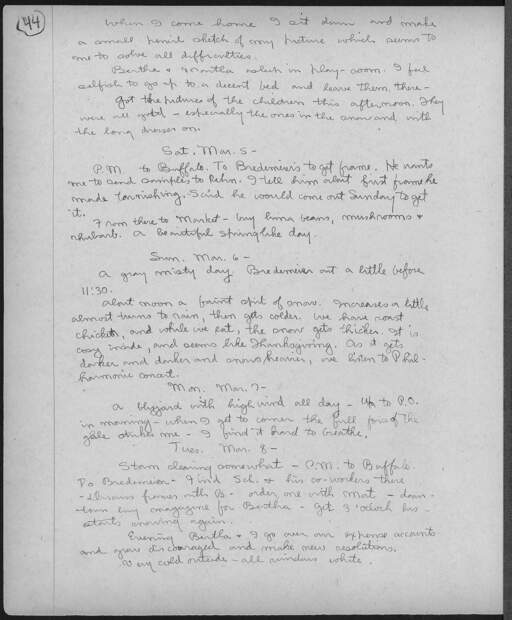 44
When I come home I sit down and make
a small pencil sketch of my picture which seems to
me to solve all difficulties.
Bertha & Martha asleep in play-room. I feel
selfish to go up to a decent bed and leave them there -
Got the pictures of the children this afternoon. They
were all good - especially the ones in the snow and with
the long dresses on.
Sat. Mar. 5 -
P.M. to Buffalo. To Bredemeier's to get frame. He wants
me to send samples to Rehn. I tell him about first frame he
made tarnishing. Said he would come out Sunday to get
it.
From there to Market - buy lima beans, mushrooms &
rhubarb. A beautiful springlike day.
Sun. Mar. 6 -
A gray misty day. Bredemeier out a little before
11:30.
About noon a faint spit of snow. Increases a little
almost turns to rain, then gets colder. We have roast
chicken, and while we eat, the snow gets thicker. It is
cosy inside, and seems like Thanksgiving. As it gets
darker and darker and snow heavier, we listen to Phil-
harmonic concert.
Mon. Mar. 7 -
A blizzard with high wind all day - Up to P.O.
in morning - when I get to corner the full force of the
gale strikes me - I find it hard to breathe.
Tues. Mar. 8 -
Storm clearing somewhat - P.M. to Buffalo.
To Bredemeier - Find Sch. & his co-workers there
- discuss frames with B - order one with mat - down-
town buy magazine for Bertha - Get 3 o'clock bus -
starts snowing again.
Evening Bertha & I go over our expense accounts
and grow discouraged and make new resolutions.
Very cold outside - all windows white.